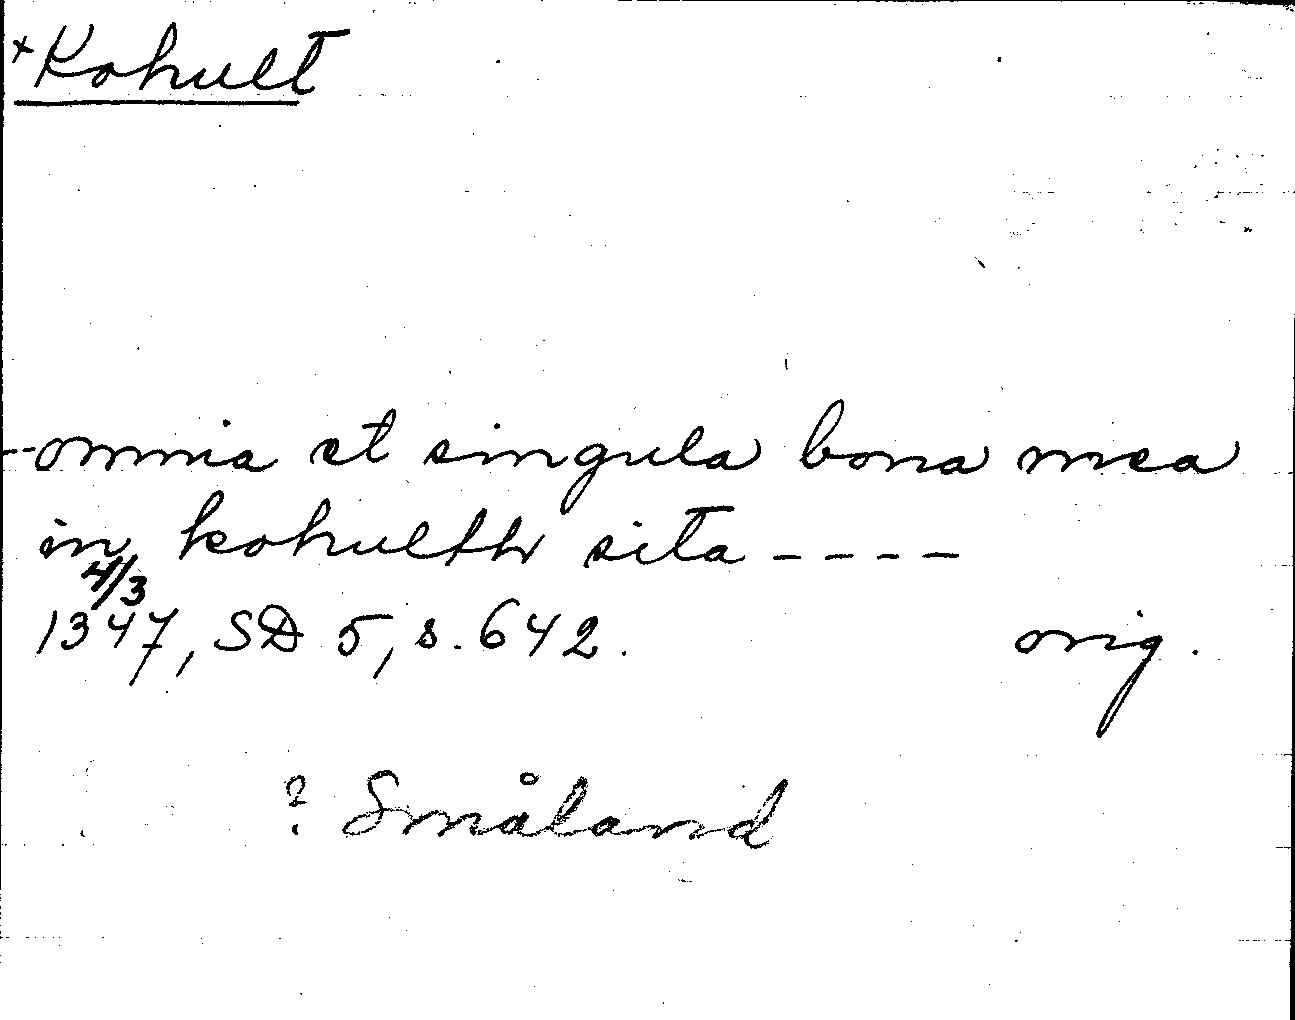 +Kohult
--omnia et singula bona mea
in kohulth sita ----
4/3
1347, SD 5, s. 642. orig.
? Småland